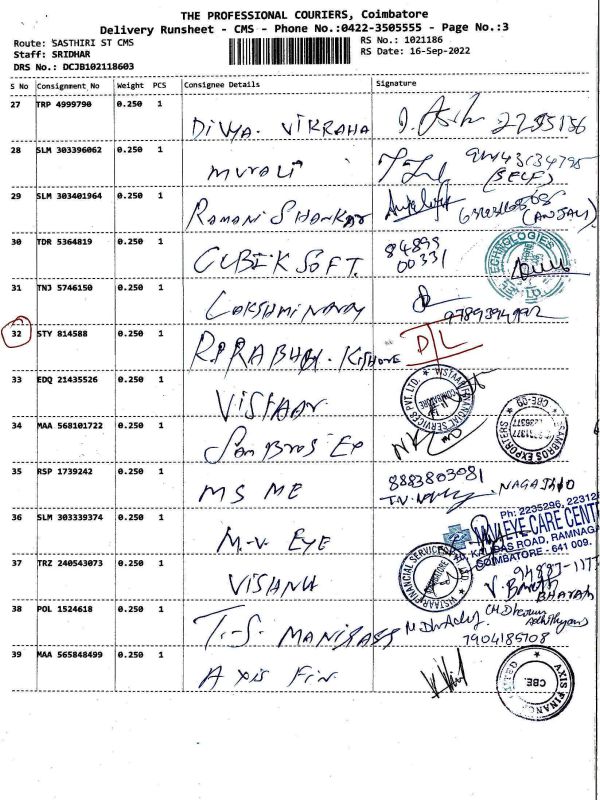 THE PROFESSIONAL COURIERS, Coimbatore
Delivery Runsheet - CMS - Phone No.:0422-3505555 - Page No.:3
Route: SASTHIRI ST CMS
RS No.: 1021186
Staff: SRIDHAR
RS Date: 16-Sep-2022
DRS No.: DCJB102118603
S No Consignment No Weight PCS Consignee Details Signature
27 TRP 4999790 0.250 1 DIVYA. VIKRAHA
28 SLM 303396062 0.250 1 MURALI (SELF)
29 SLM 303401964 0.250 1 RAMANI SHANKAR (ANJALI)
30 TDR 5364819 0.250 1 CUBEK SOFT. 84899 00331
TECHNOLOGIES
31 TNJ 5746150 0.250 1
32 STY 814588 0.250 1 R.PRABHU. KISHORE D/L
33 EDQ 21435526 0.250 1 VISTAAR
VISTAAR FINANCIAL SERVICES PVT. LTD. COIMBATORE
34 MAA 568101722 0.250 1 SAM BROS EP
SAM BROS EXPORTERS CBE-09
35 RSP 1739242 0.250 1 MS ME 8883803081 NAGARAJ
36 SLM 303339374 0.250 1 M.V. EYE
Ph: 2235296,
M.V. EYE CARE CENT
KALIDAS ROAD, RAMNAGA
COIMBATORE - 641 009.
37 TRZ 240543073 0.250 1 VISHNU
VISTAAR FINANCIAL SERVICES PVT. LTD. COIMBATORE
BHARATH
38 POL 1524618 0.250 1 T.S. 7904185708
39 MAA 565848499 0.250 1 AXIS FIN
AXIS FINANCE LIMITED CBE.